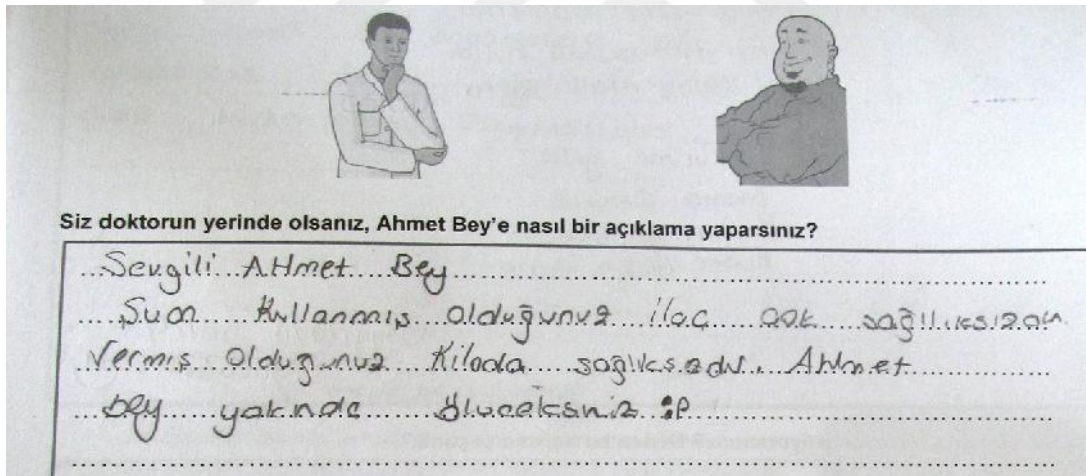 Siz doktorun yerinde olsanız, Ahmet Bey'e nasıl bir açıklama yaparsınız?
Sevgili AHmet Bey
Şuan Kullanmış olduğunuz ilaç çok sağlıksızdır.
Vermiş olduğunuz Kiloda sağlıksızdır. Ahmet
bey yakında öluceksniz :P